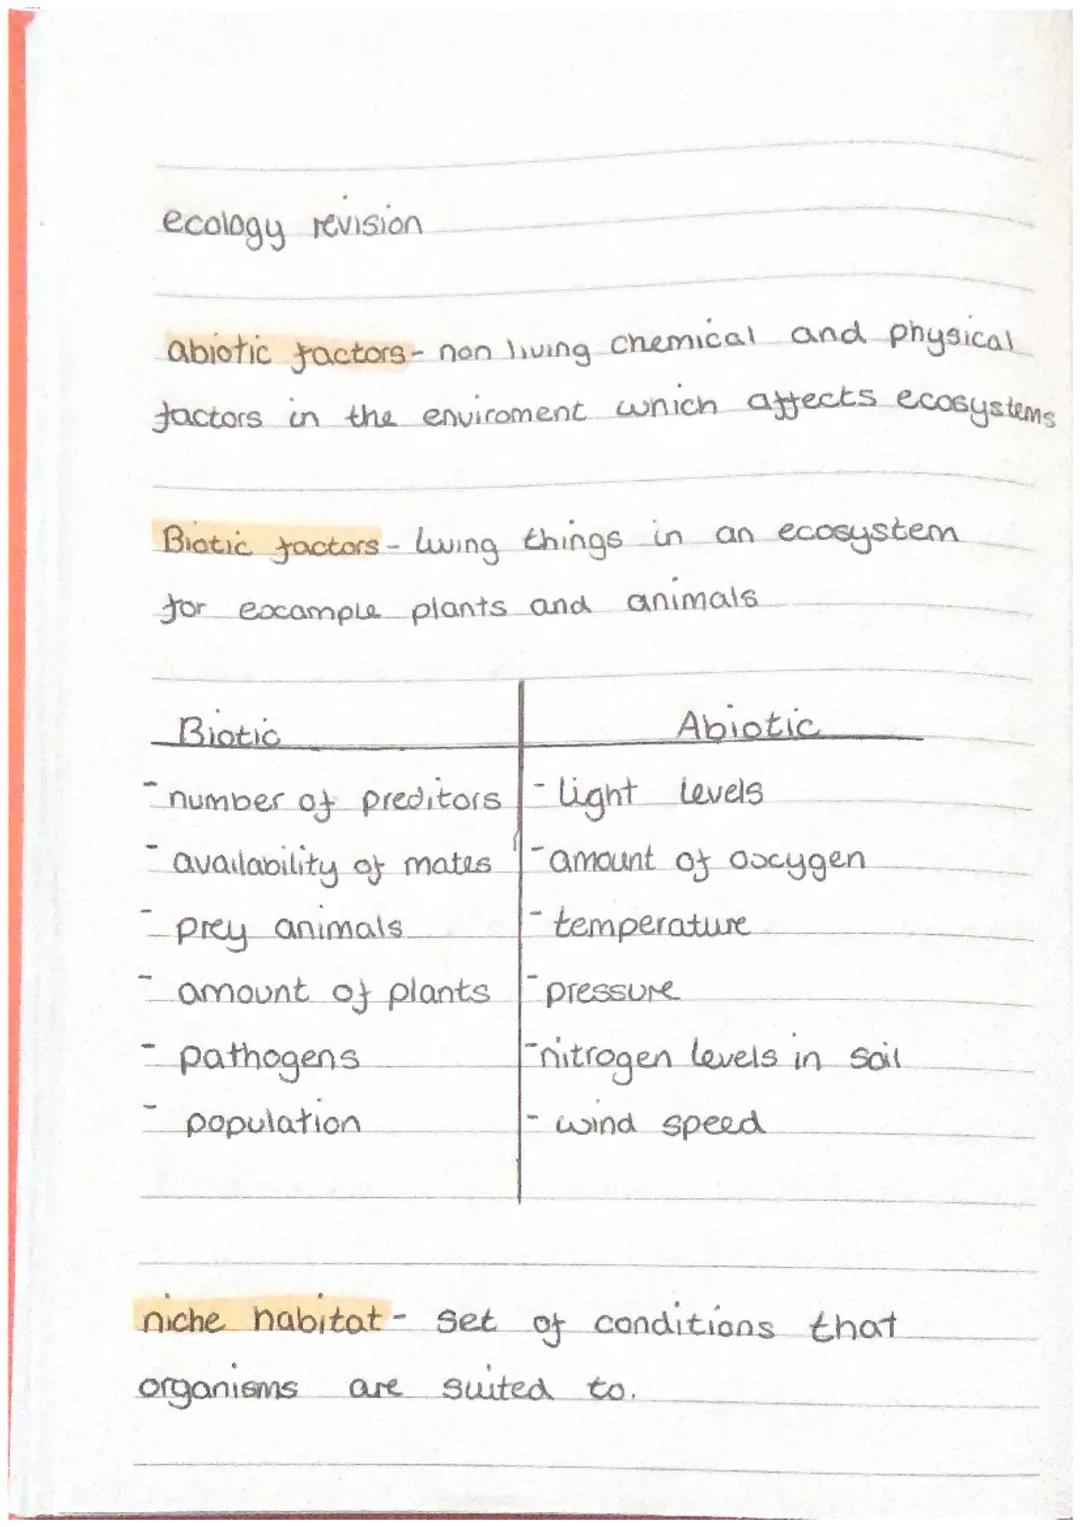 ecology revision
abiotic factors - non living chemical and physical
factors in the enviroment which affects ecosystems
Biotic factors - living things in an ecosystem
for example plants and animals
Biotic Abiotic
- number of preditors - light levels
- availability of mates - amount of oxygen
- prey animals - temperature
- amount of plants - pressure
- pathogens - nitrogen levels in soil
- population - wind speed
niche habitat - set of conditions that
organisms are suited to.